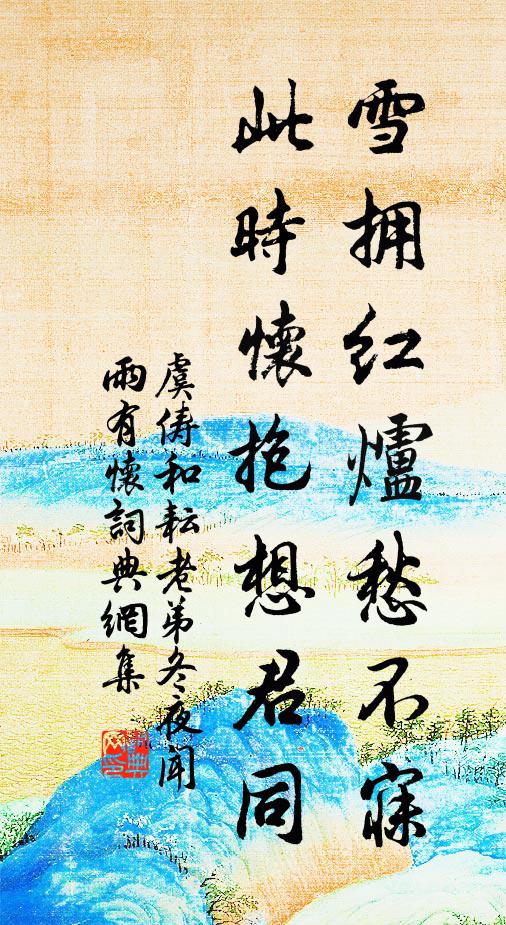 雪擁紅爐愁不寐
此時懷抱想君同
虞儔和耘老弟冬夜聞
雨有懷詞典網集